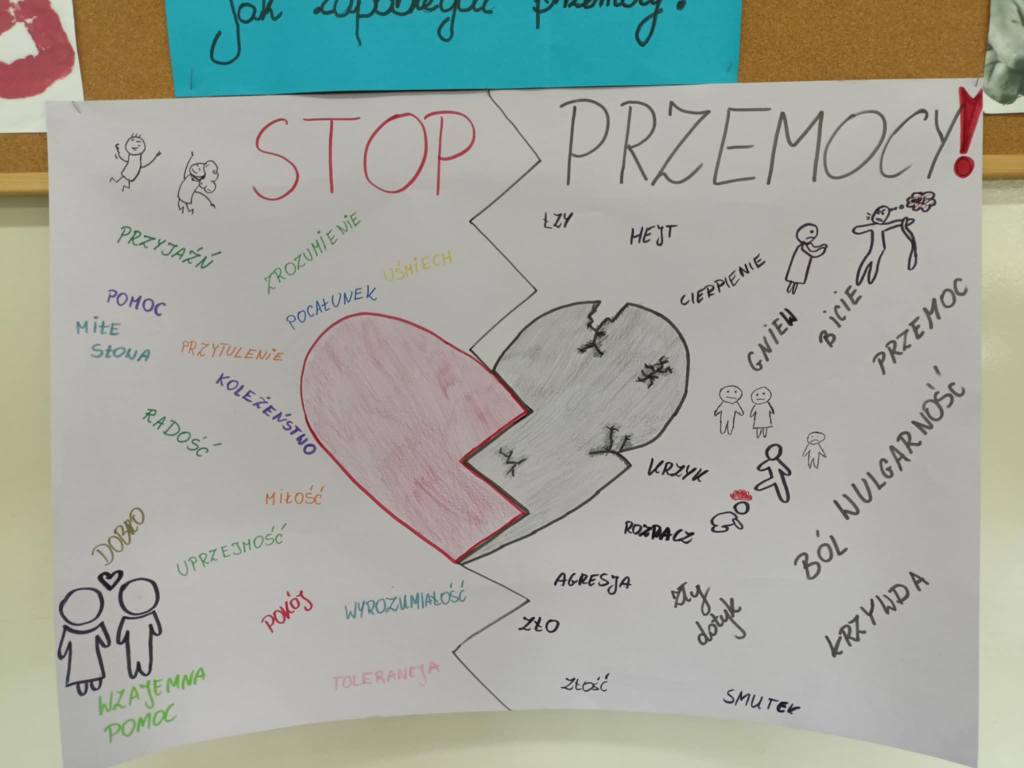 Jak zapobiegać przemocy?
STOP PRZEMOCY!
PRZYJAŹŃ
ZROZUMIENIE
UŚMIECH
POCAŁUNEK
POMOC
MIŁE
SŁOWA
PRZYTULENIE
KOLEŻEŃSTWO
RADOŚĆ
MIŁOŚĆ
DOBRO
UPRZEJMOŚĆ
POKÓJ
WYROZUMIAŁOŚĆ
TOLERANCJA
WZAJEMNA
POMOC
ŁZY
HEJT
CIERPIENIE
GNIEW
BICIE
PRZEMOC
KRZYK
WULGARNOŚĆ
BÓL
ROZPACZ
AGRESJA
Zły
dotyk
KRZYWDA
ZŁO
ZŁOŚĆ
SMUTEK